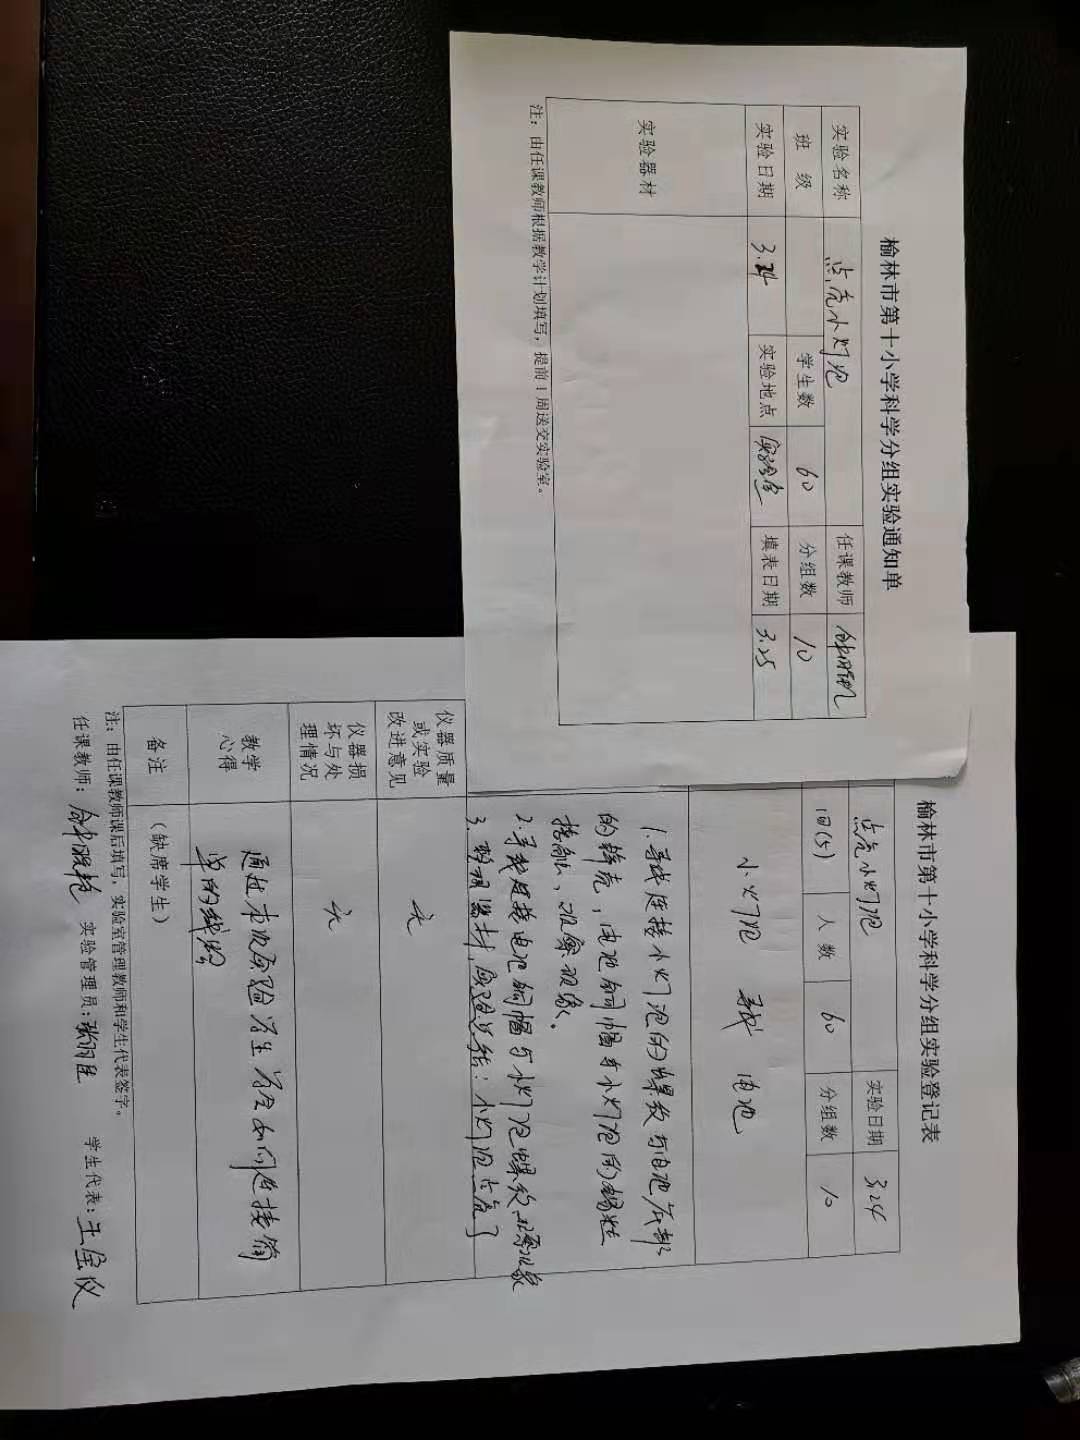 榆林市第十小学科学分组实验通知单
实验名称 点亮小灯泡 任课教师
班 级 学生数 60 分组数 10
实验日期 3.24 实验地点 实验室 填表日期 3.25
实验器材
注：由任课教师根据教学计划填写，提前1周送交实验室。
榆林市第十小学科学分组实验登记表
点亮小灯泡 实验日期 3.24
四(5) 人 数 60 分组数 10
小灯泡 导线 电池
1.导线连接小灯泡的螺纹与电池底部
的锌壳，电池铜帽与小灯泡的锡粒
接触、观察现象。
2.导线连接电池铜帽与小灯泡螺纹 观察现象
3.整理器材，实验总结：小灯泡点亮了
仪器质量
或实验
改进意见
无
仪器损
坏与处
理情况
无
教学
心得
通过本次实验学生学会如何连接简
单的线路
备注 （缺席学生）
注：由任课教师课后填写，实验室管理教师和学生代表签字。
任课教师： 实验管理员： 学生代表：王宝仪